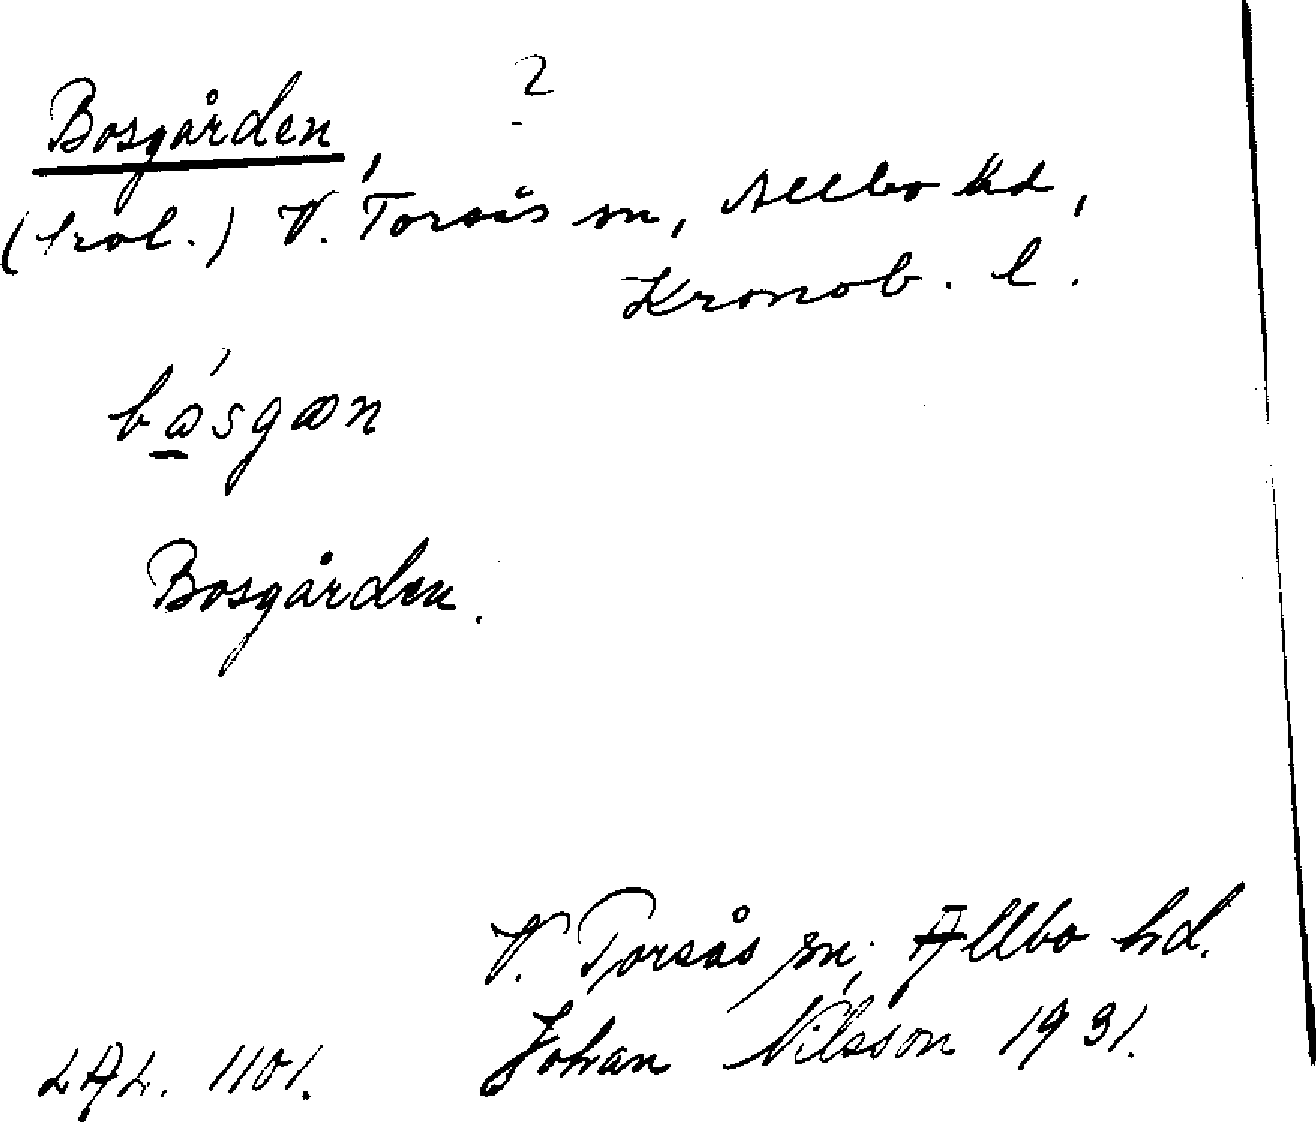 2
Bosgården,
(trol.) V. Torsås sn, Allbo hd,
Kronob. l.
båsgæn
Bosgården.
V. Torsås sn, Allbo hd.
LAL. 1101. Johan Nilsson 1931.